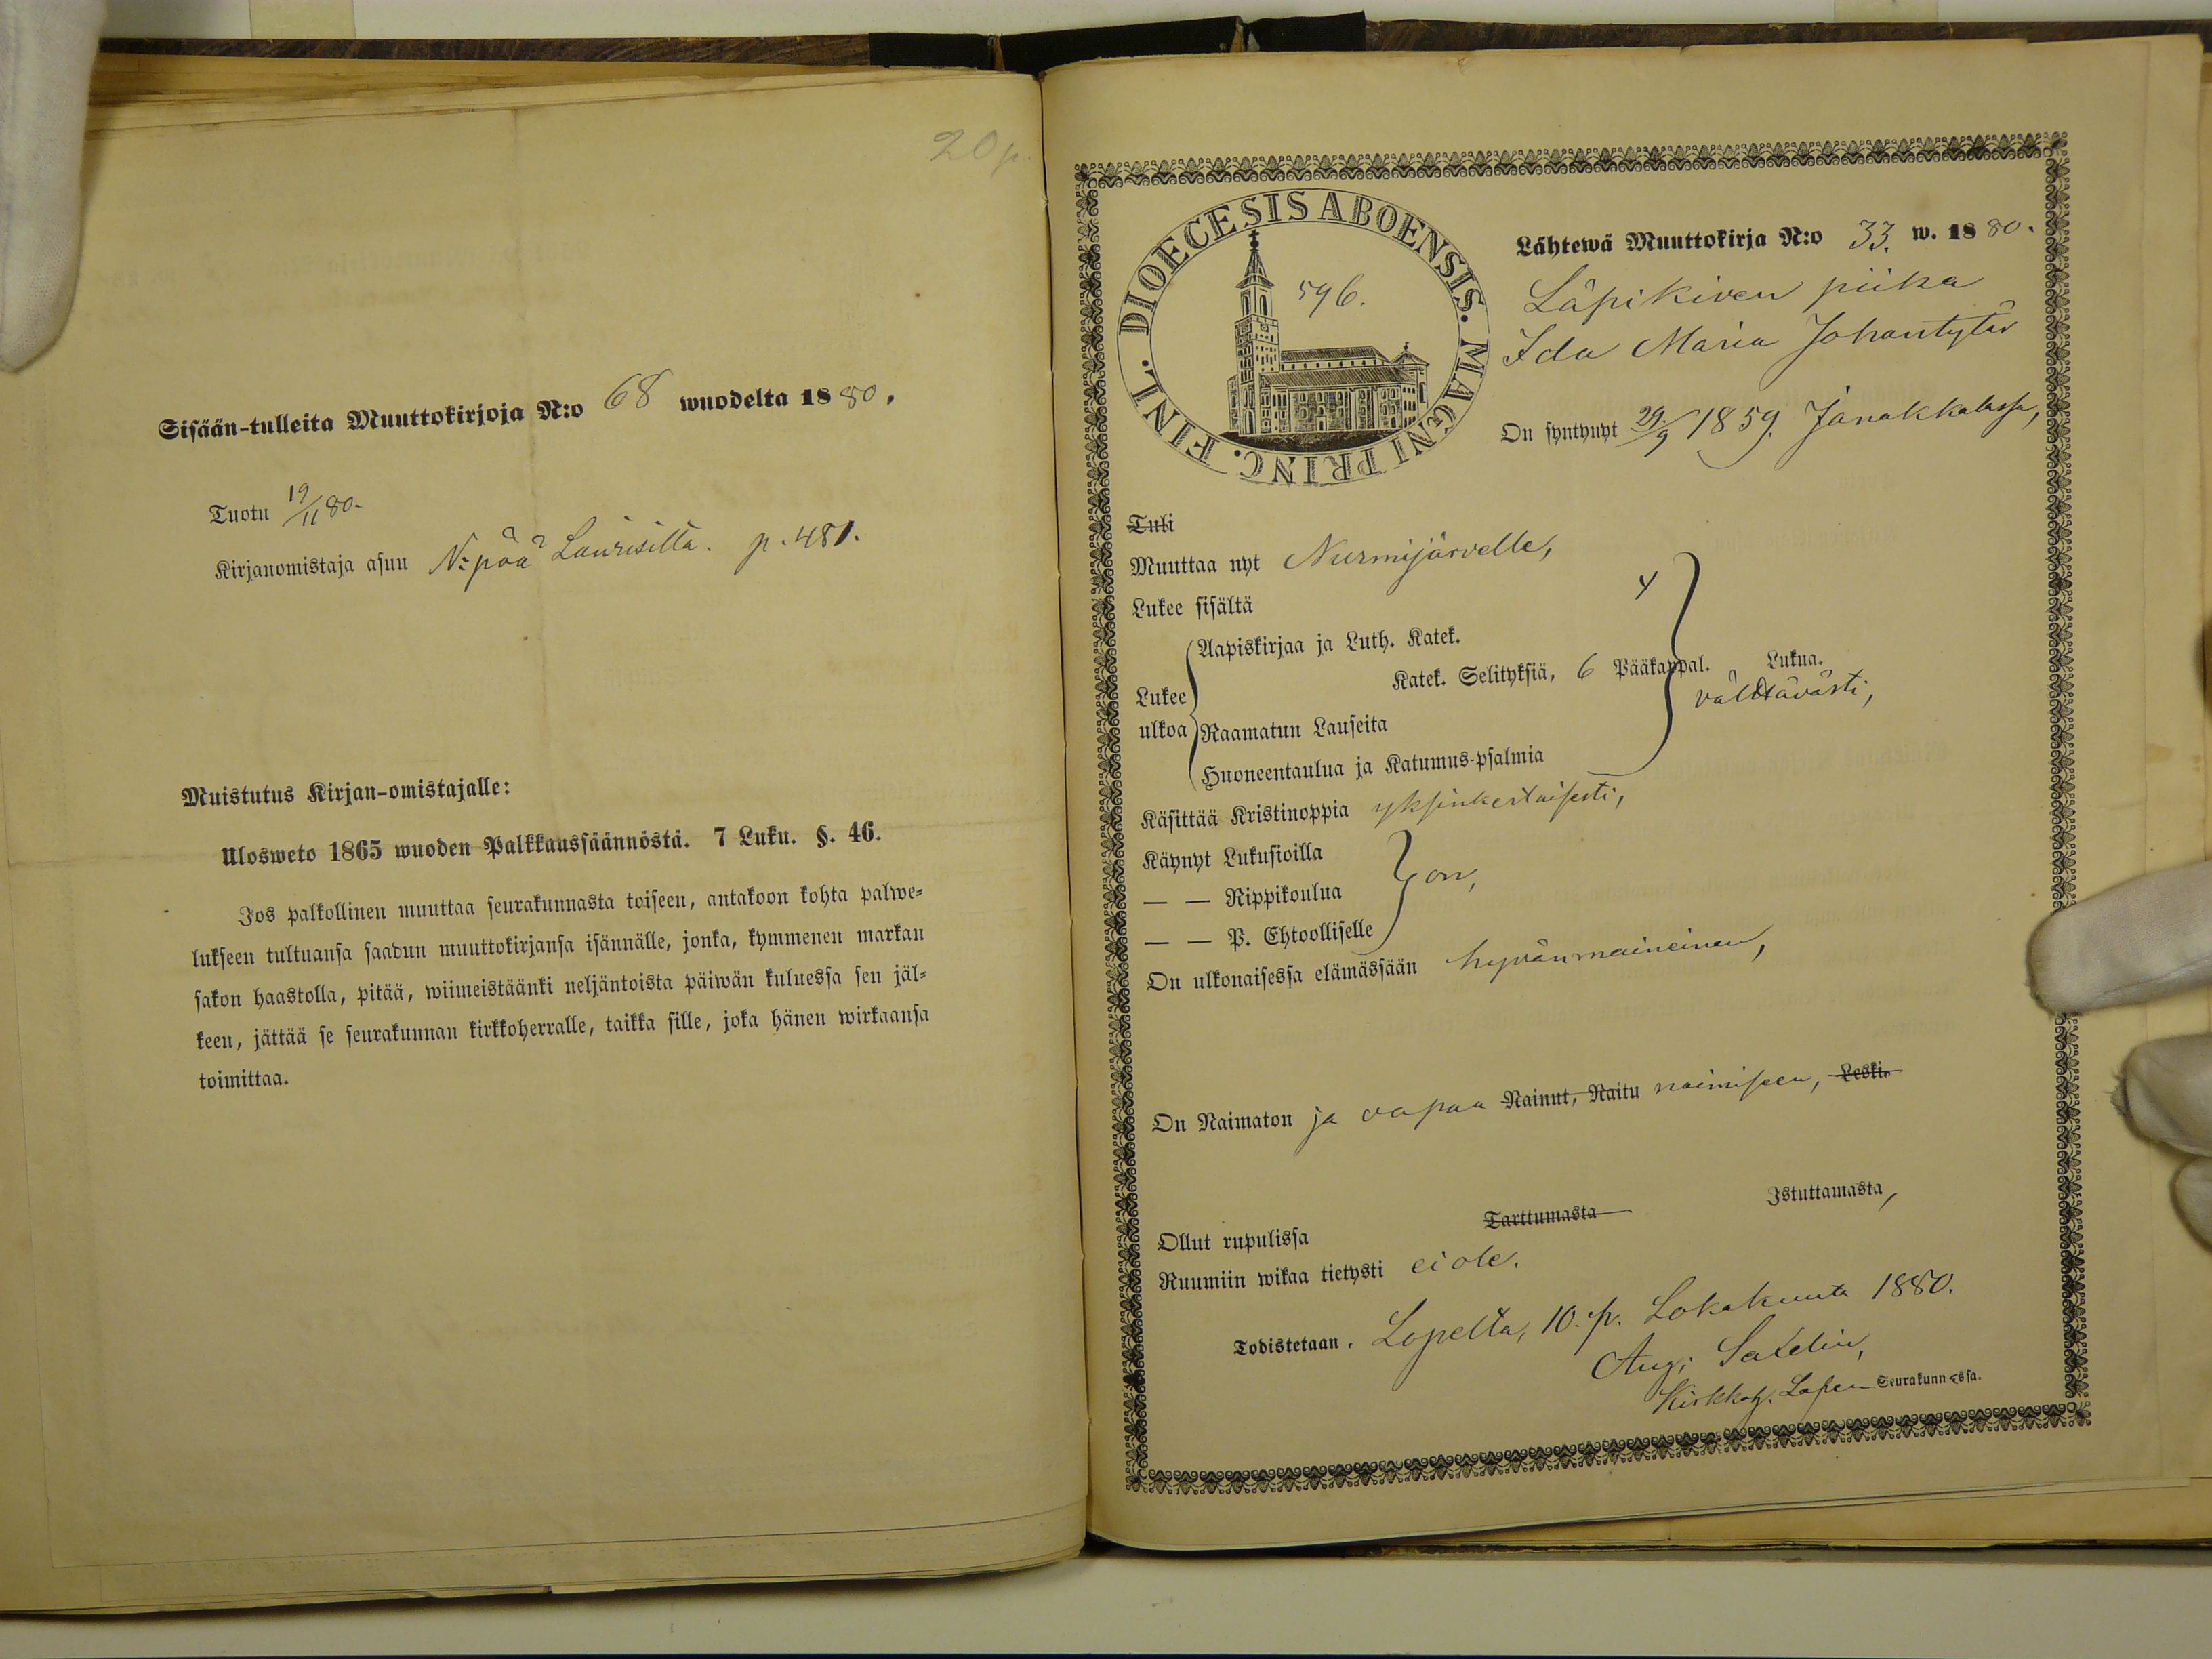 20 p.
Sisään-tulleita Muuttokirjoja N:o 68 wuodelta 1880.
Tuotu 19/11 80.
Kirjanomistaja asuu N:pää Laurisilla. p. 481.
Muistutus Kirjan-omistajalle:
Ulosweto 1865 wuoden Palkkaussäännöstä. 7 Luku. §. 46.
Jos palkollinen muuttaa seurakunnasta toiseen, antakoon kohta palwe-
lukseen tultuansa saadun muuttokirjansa isännälle, jonka, kymmenen markan
sakon haastolla, pitää, wiimeistäänki neljäntoista päiwän kuluessa sen jäl-
keen, jättää se seurakunnan kirkkoherralle, taikka sille, joka hänen wirkaansa
toimittaa.
DIOECESIS ABOENSIS. MAGNI PRINC. FINL.
596.
Lähtewä Muuttokirja N:o 33. w. 1880.
Läpikiven piika
Ida Maria Johantytär
On syntynyt 29/9 1859. Janakkalassa,
Tuli
Muuttaa nyt Nurmijärvelle,
Lukee sisältä
Lukee ulkoa
Aapiskirjaa ja Luth. Katek.
Katek. Selityksiä, 6 Pääkappal. Lukua.
välttävästi,
Raamatun Lauseita
Huoneentaulua ja Katumus-psalmia
Käsittää Kristinoppia yksinkertaisesti,
Käynyt Lukusioilla
— — Rippikoulua on,
— — P. Ehtoolliselle
On ulkonaisessa elämässään hyvänmaineinen,
On Naimaton ja vapaa Nainut, Naitu naimiseen, Leski.
Ollut rupulissa Tarttumasta Istuttamasta,
Ruumiin wikaa tietysti ei ole.
Todistetaan. Lopelta, 10. p. Lokakuuta 1880.
Aug:
Kirkkoh. Lopen Seurakunnassa.